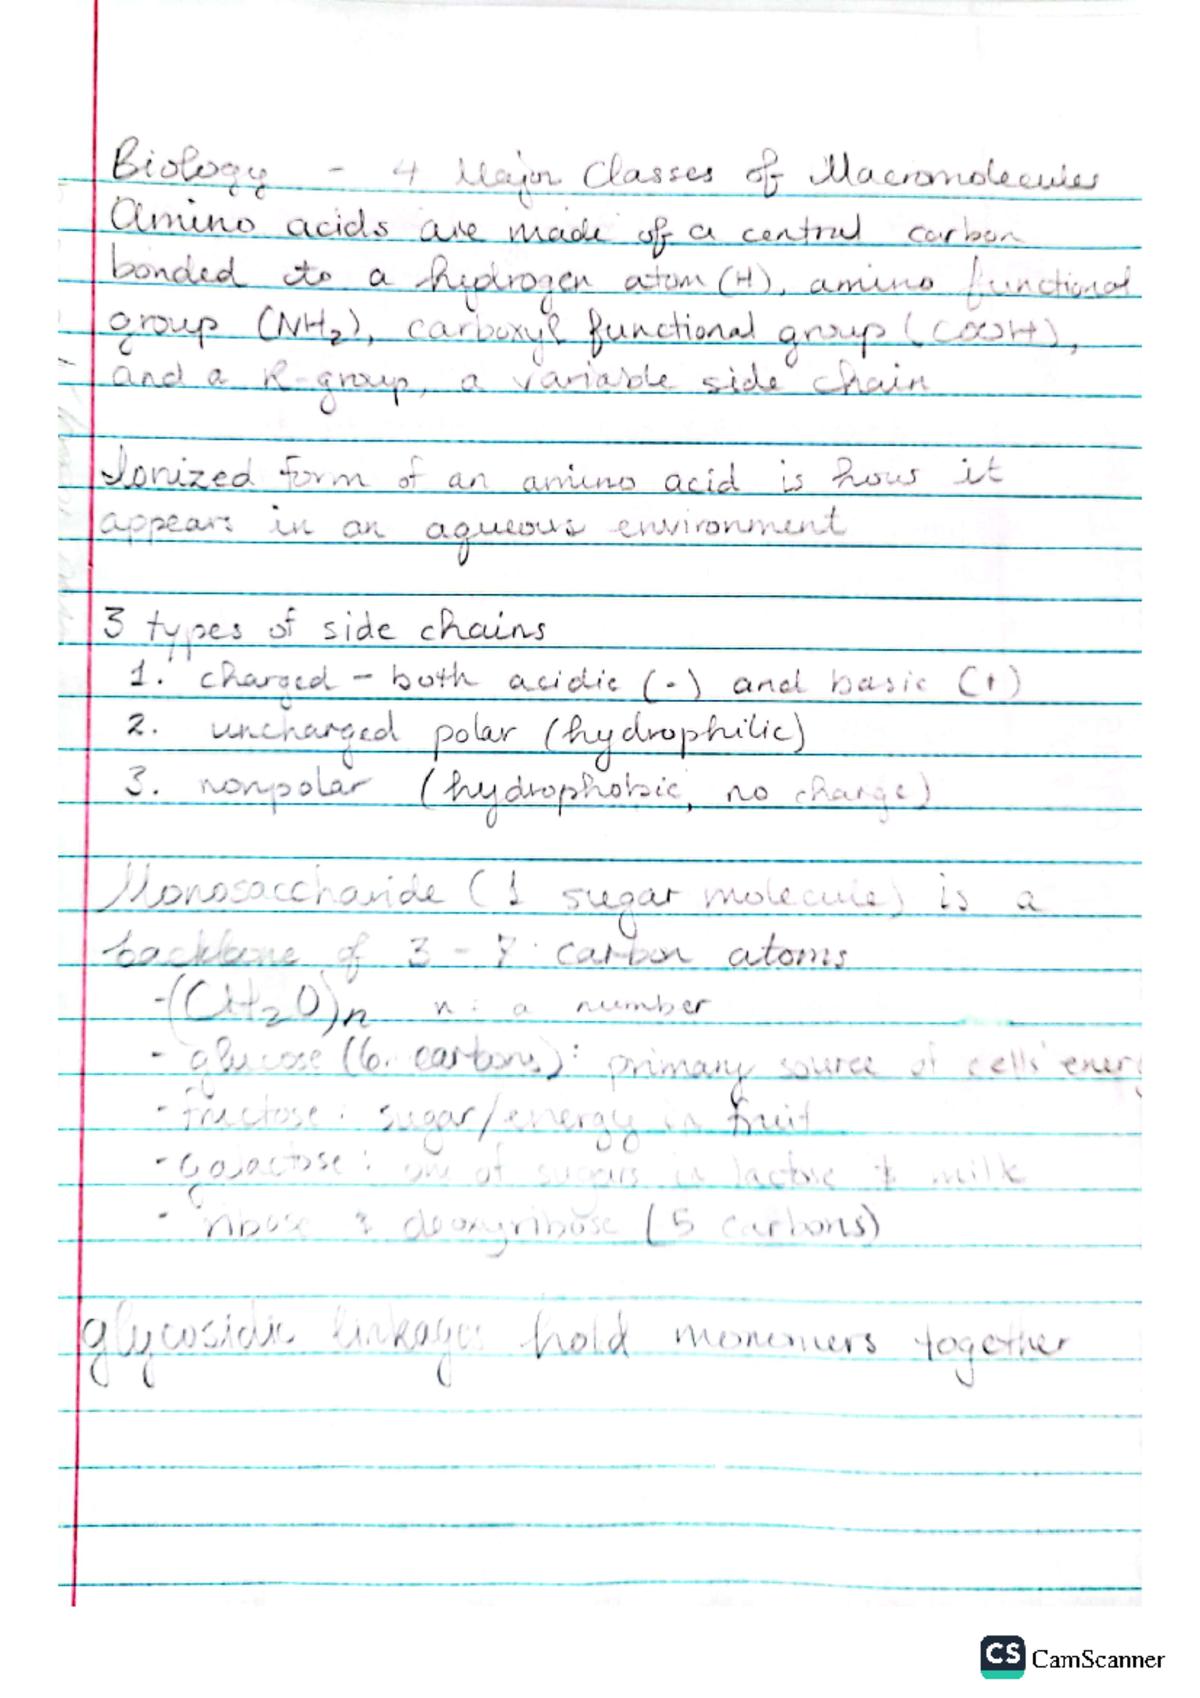 Biology - 4 Major Classes of Macromolecules
Amino acids are made of a central carbon
bonded to a hydrogen atom (H), amino functional
group (NH₂), carboxyl functional group (COOH),
and a R-group, a variable side chain
Ionized form of an amino acid is how it
appears in an aqueous environment
3 types of side chains
1. charged - both acidic (-) and basic (+)
2. uncharged polar (hydrophilic)
3. nonpolar (hydrophobic, no charge)
Monosaccharide (1 sugar molecule) is a
backbone of 3 - 7 carbon atoms
-(CH₂O)n n: a number
- glucose (6 carbons): primary source of cells' energ
- fructose: sugar/energy in fruit
- galactose: one of sugars in lactose & milk
- ribose & deoxyribose (5 carbons)
glycosidic linkages hold monomers together
CS CamScanner